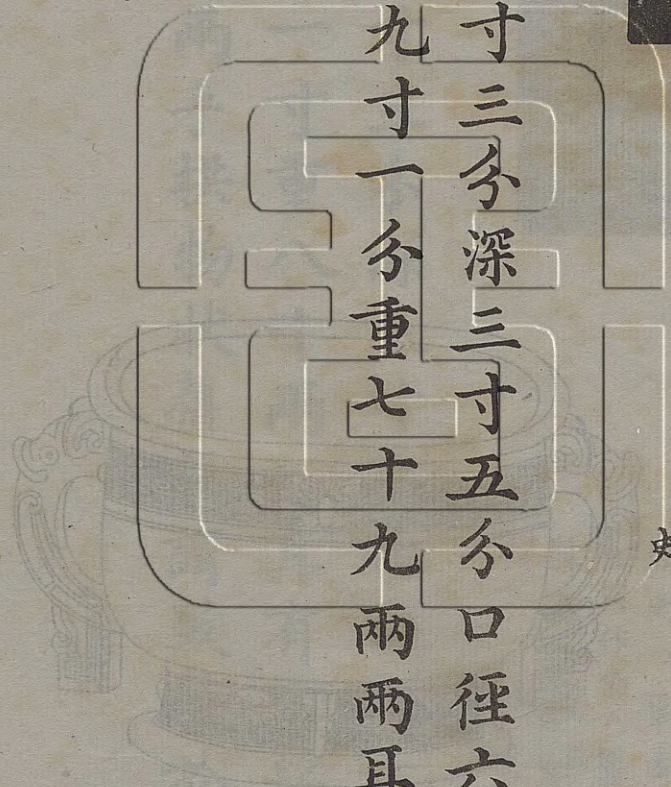 寸三分深三寸五分口徑六
九寸一分重七十九兩兩耳